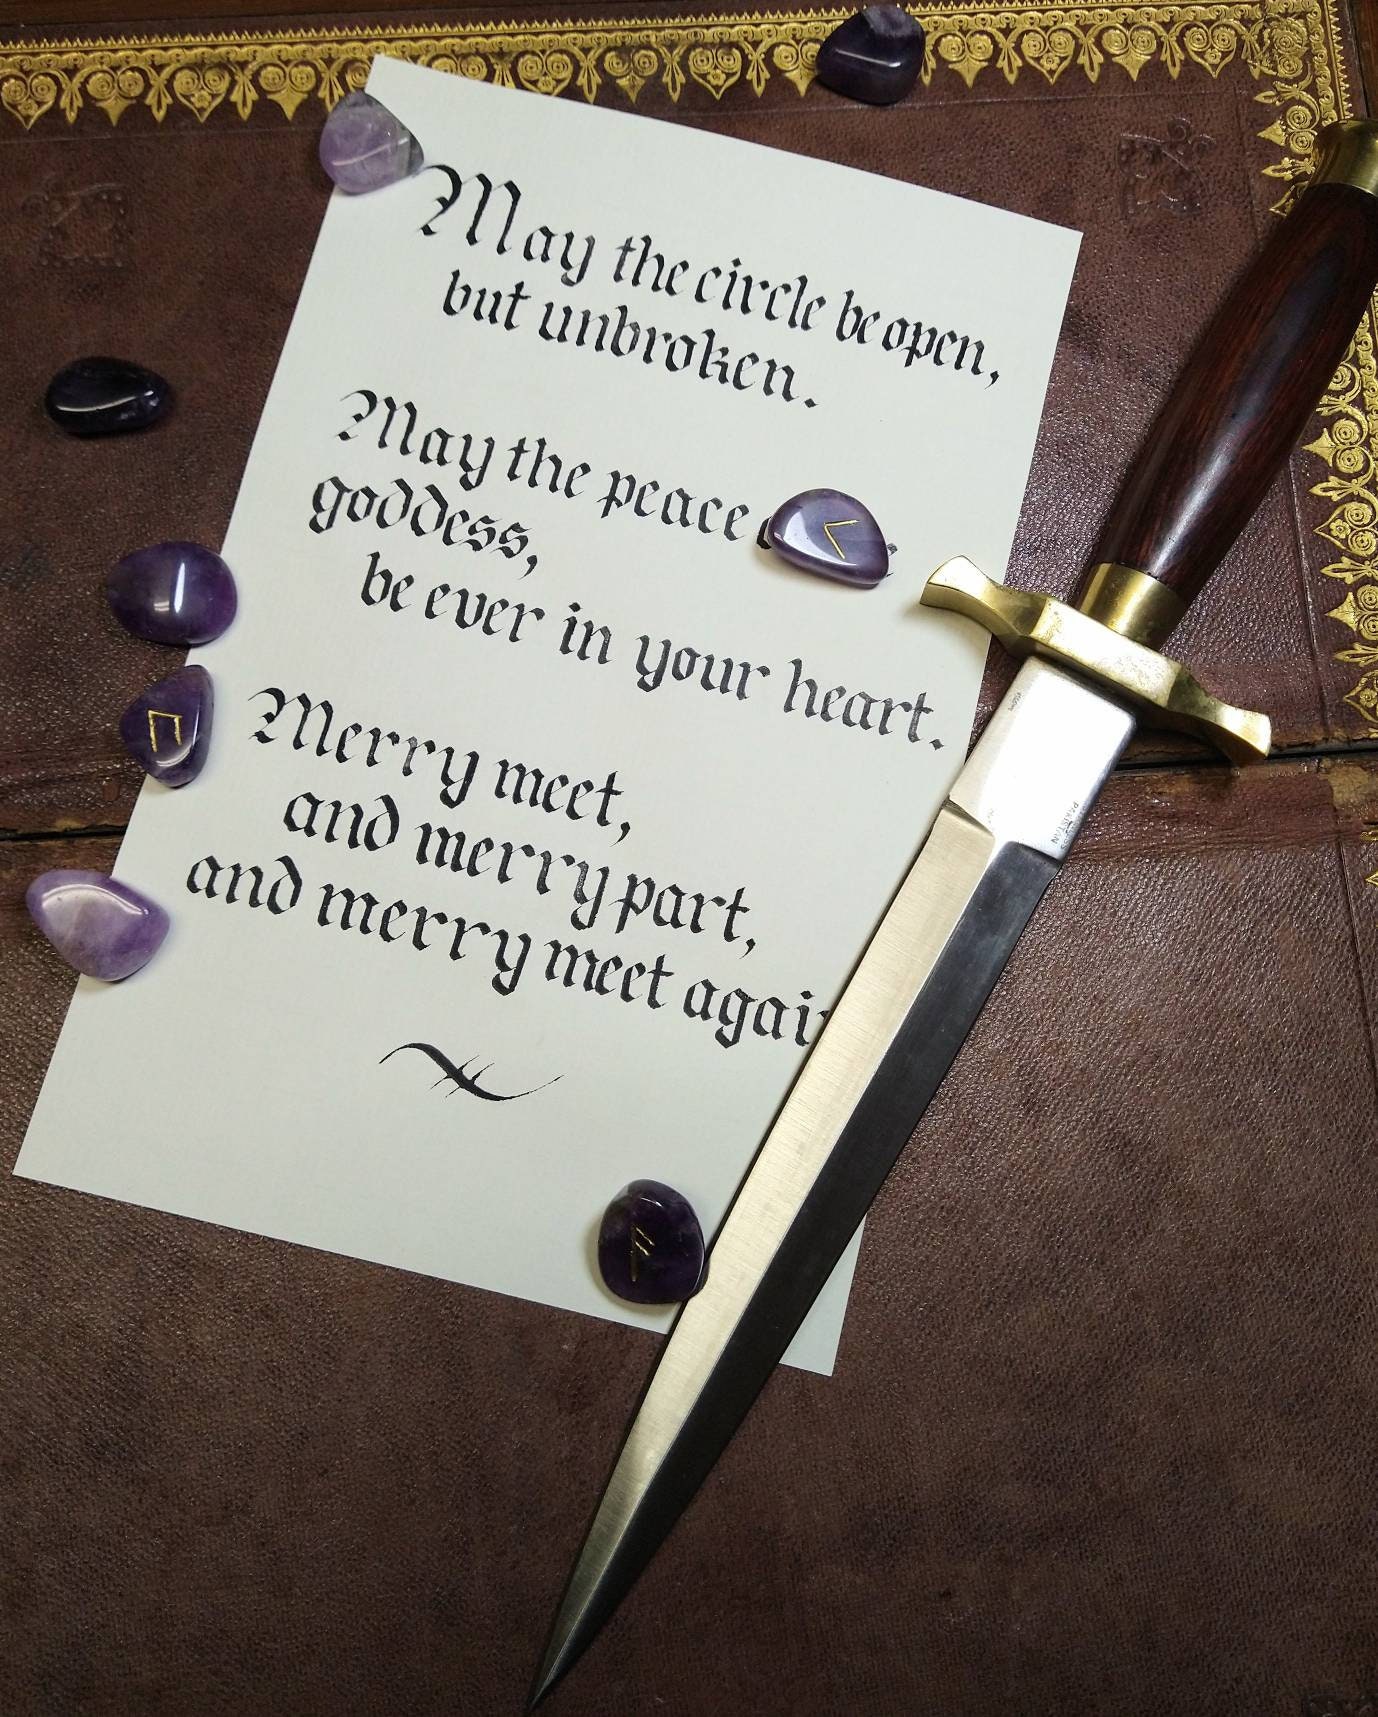 May the circle be open,
but unbroken.
May the peace
goddess,
be ever in your heart.
Merry meet,
and merry part,
and merry meet agai
PAKISTAN